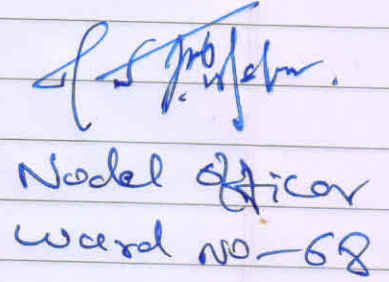 Nodal Officer
Ward NO-68